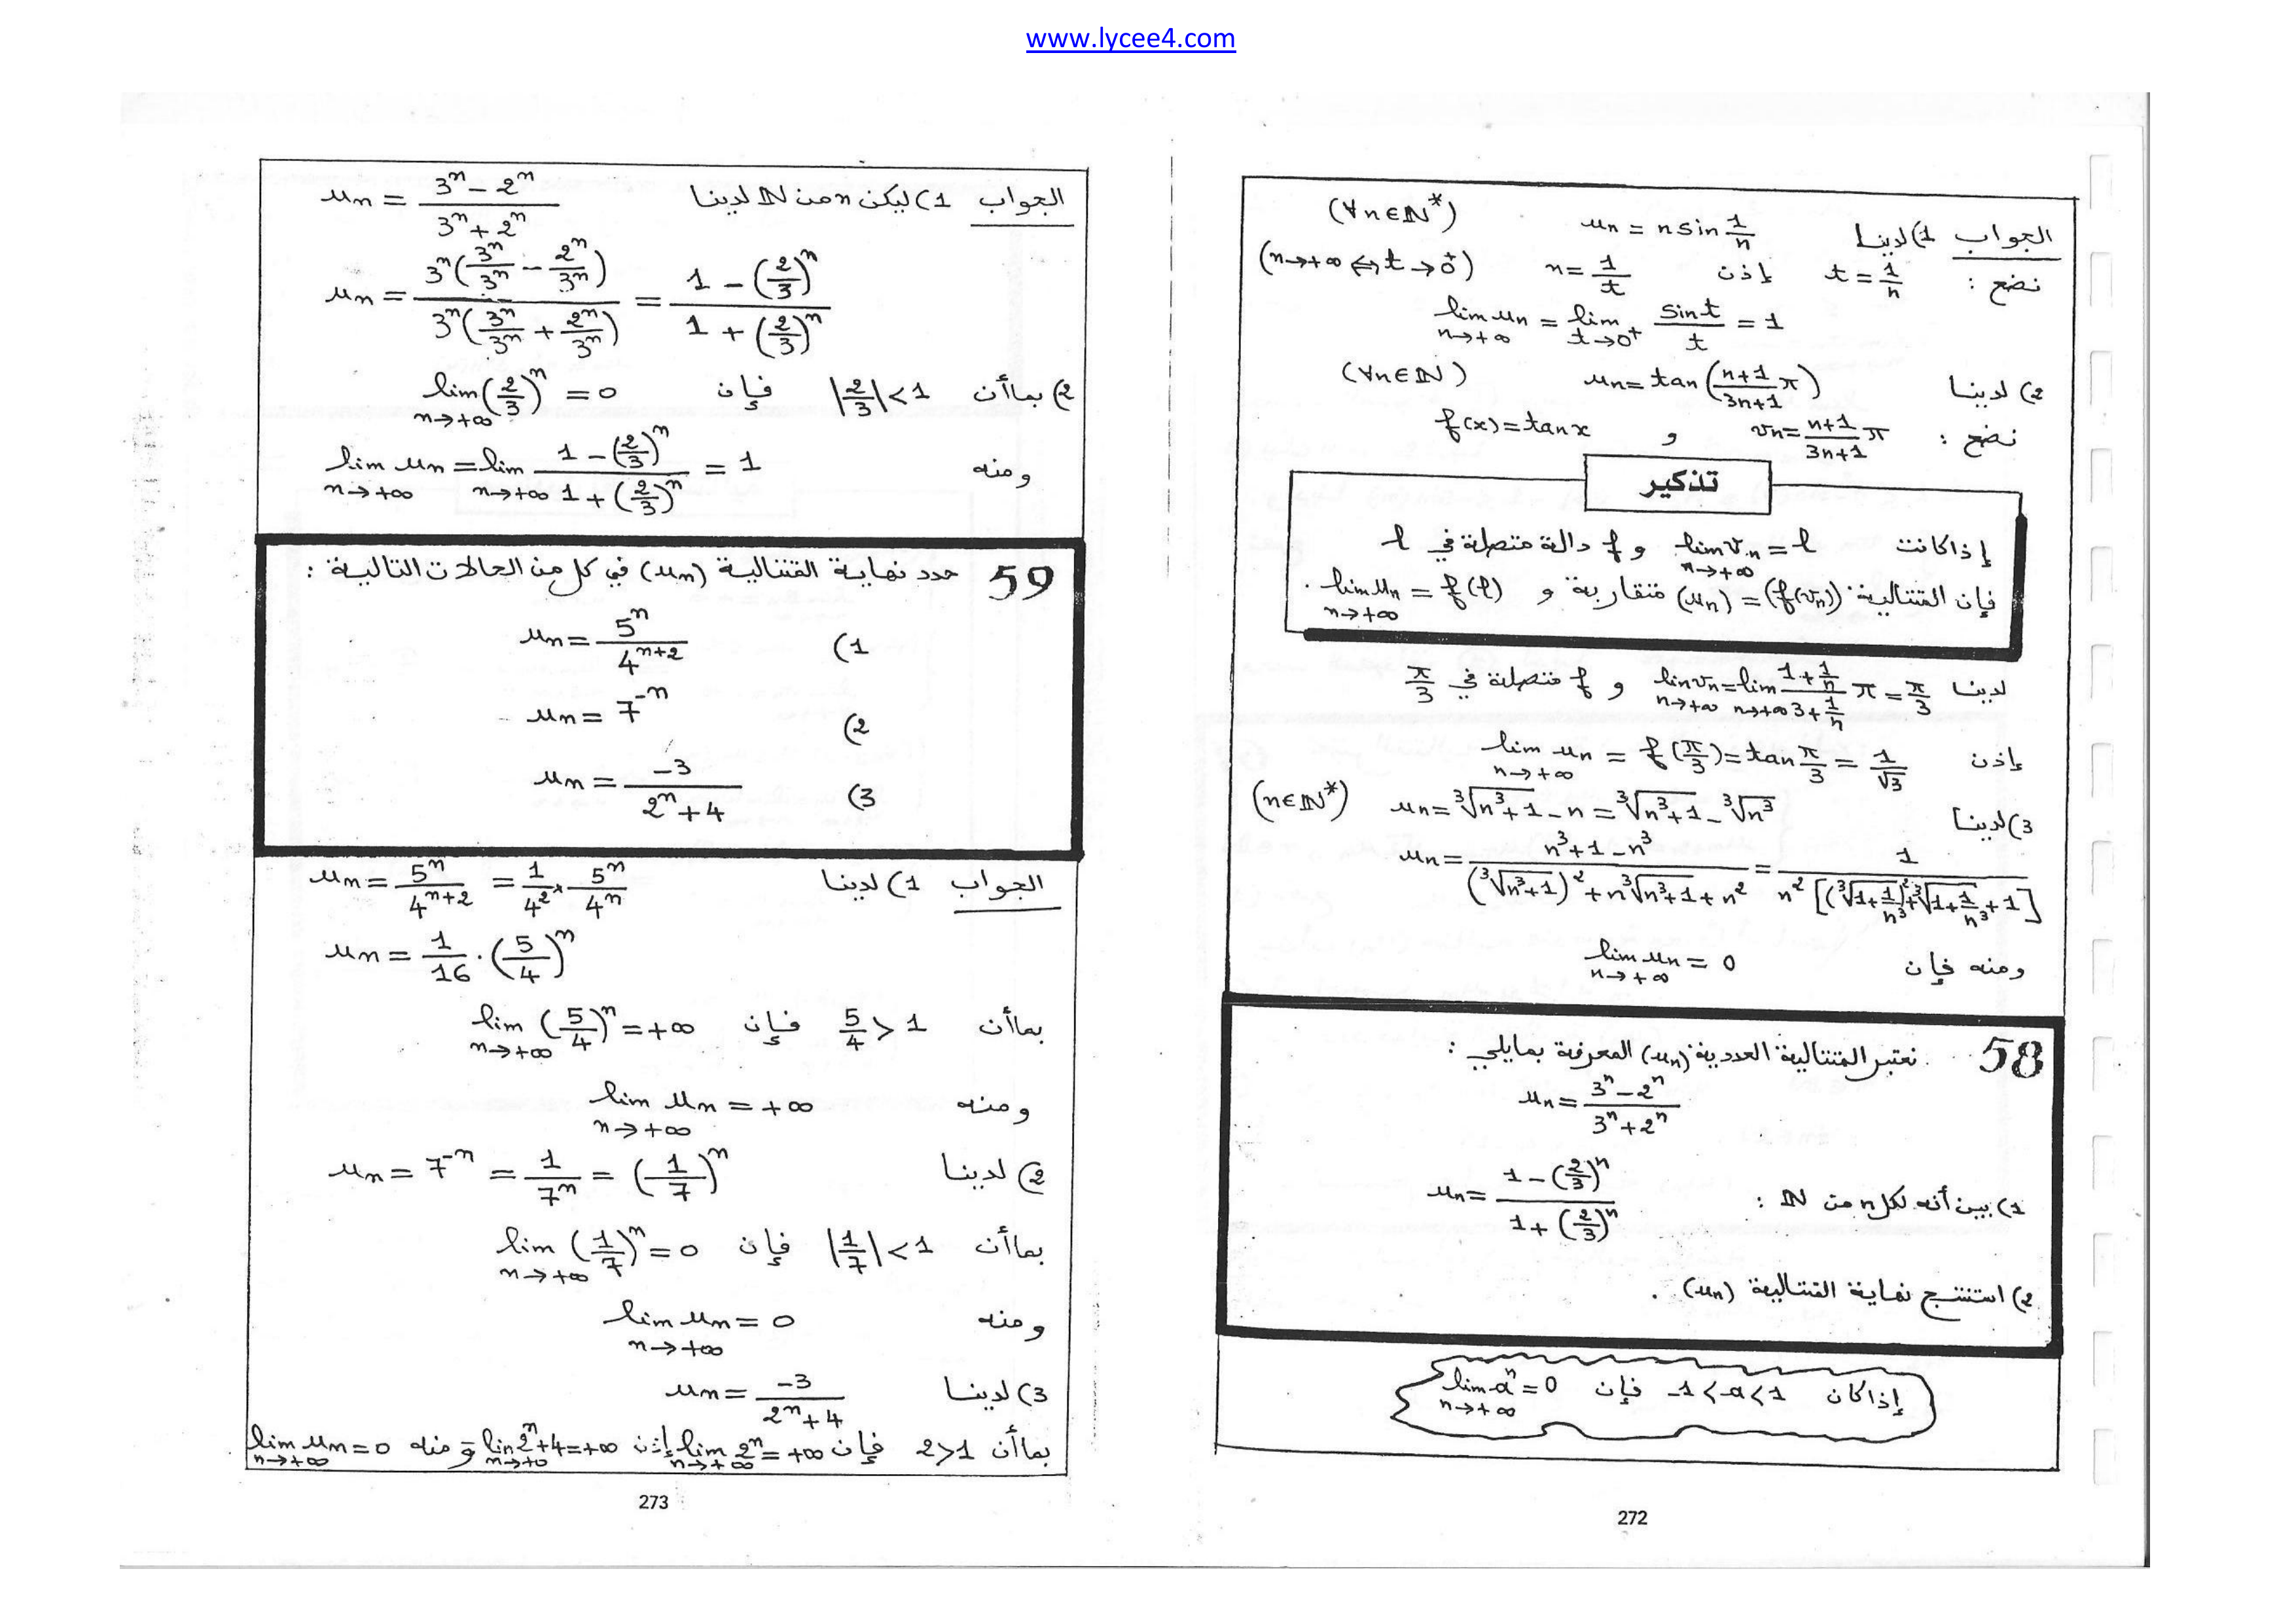 www.lycee4.com
الجواب 1) لدينا u_n = n sin 1/n (∀n∈ℕ*)
نضع : t = 1/n إذن n = 1/t (n→+∞ ⇔ t→0⁺)
lim_{n→+∞} u_n = lim_{t→0⁺} sin t / t = 1
2) لدينا u_n = tan((n+1)/(3n+1) π) (∀n∈ℕ)
نضع : v_n = (n+1)/(3n+1) π و f(x) = tan x
تذكير
إذا كانت lim_{n→+∞} v_n = l و f دالة متصلة في l
فإن المتتالية (u_n) = (f(v_n)) متقاربة و lim_{n→+∞} u_n = f(l) .
لدينا lim_{n→+∞} v_n = lim_{n→+∞} (1+1/n)/(3+1/n) π = π/3 و f متصلة في π/3
إذن lim_{n→+∞} u_n = f(π/3) = tan π/3 = 1/√3
3) لدينا u_n = ∛(n³+1) - n = ∛(n³+1) - ∛n³ (n∈ℕ*)
u_n = (n³+1-n³)/((∛(n³+1))² + n∛(n³+1) + n²) = 1/(n²[(∛(1+1/n³))² + ∛(1+1/n³) + 1])
ومنه فإن lim_{n→+∞} u_n = 0
58 نعتبر المتتالية العددية (u_n) المعرفة بمايلي :
u_n = (3ⁿ - 2ⁿ)/(3ⁿ + 2ⁿ)
1) بين أنه لكل n من ℕ : u_n = (1 - (2/3)ⁿ)/(1 + (2/3)ⁿ)
2) استنتج نهاية المتتالية (u_n) .
إذا كان -1 < a < 1 فإن lim_{n→+∞} aⁿ = 0
272
الجواب 1) ليكن n من ℕ لدينا u_n = (3ⁿ - 2ⁿ)/(3ⁿ + 2ⁿ)
u_n = 3ⁿ(3ⁿ/3ⁿ - 2ⁿ/3ⁿ)/(3ⁿ(3ⁿ/3ⁿ + 2ⁿ/3ⁿ)) = (1 - (2/3)ⁿ)/(1 + (2/3)ⁿ)
2) بما أن |2/3| < 1 فإن lim_{n→+∞} (2/3)ⁿ = 0
ومنه lim_{n→+∞} u_n = lim_{n→+∞} (1 - (2/3)ⁿ)/(1 + (2/3)ⁿ) = 1
59 حدد نهاية المتتالية (u_n) في كل من الحالات التالية :
1) u_n = 5ⁿ/4ⁿ⁺²
2) u_n = 7⁻ⁿ
3) u_n = -3/(2ⁿ+4)
الجواب 1) لدينا u_n = 5ⁿ/4ⁿ⁺² = 1/4² × 5ⁿ/4ⁿ
u_n = 1/16 · (5/4)ⁿ
بما أن 5/4 > 1 فإن lim_{n→+∞} (5/4)ⁿ = +∞
ومنه lim_{n→+∞} u_n = +∞
2) لدينا u_n = 7⁻ⁿ = 1/7ⁿ = (1/7)ⁿ
بما أن |1/7| < 1 فإن lim_{n→+∞} (1/7)ⁿ = 0
ومنه lim_{n→+∞} u_n = 0
3) لدينا u_n = -3/(2ⁿ+4)
بما أن 2>1 فإن lim_{n→+∞} 2ⁿ = +∞ إذن lim 2ⁿ+4 = +∞ ومنه lim_{n→+∞} u_n = 0
273